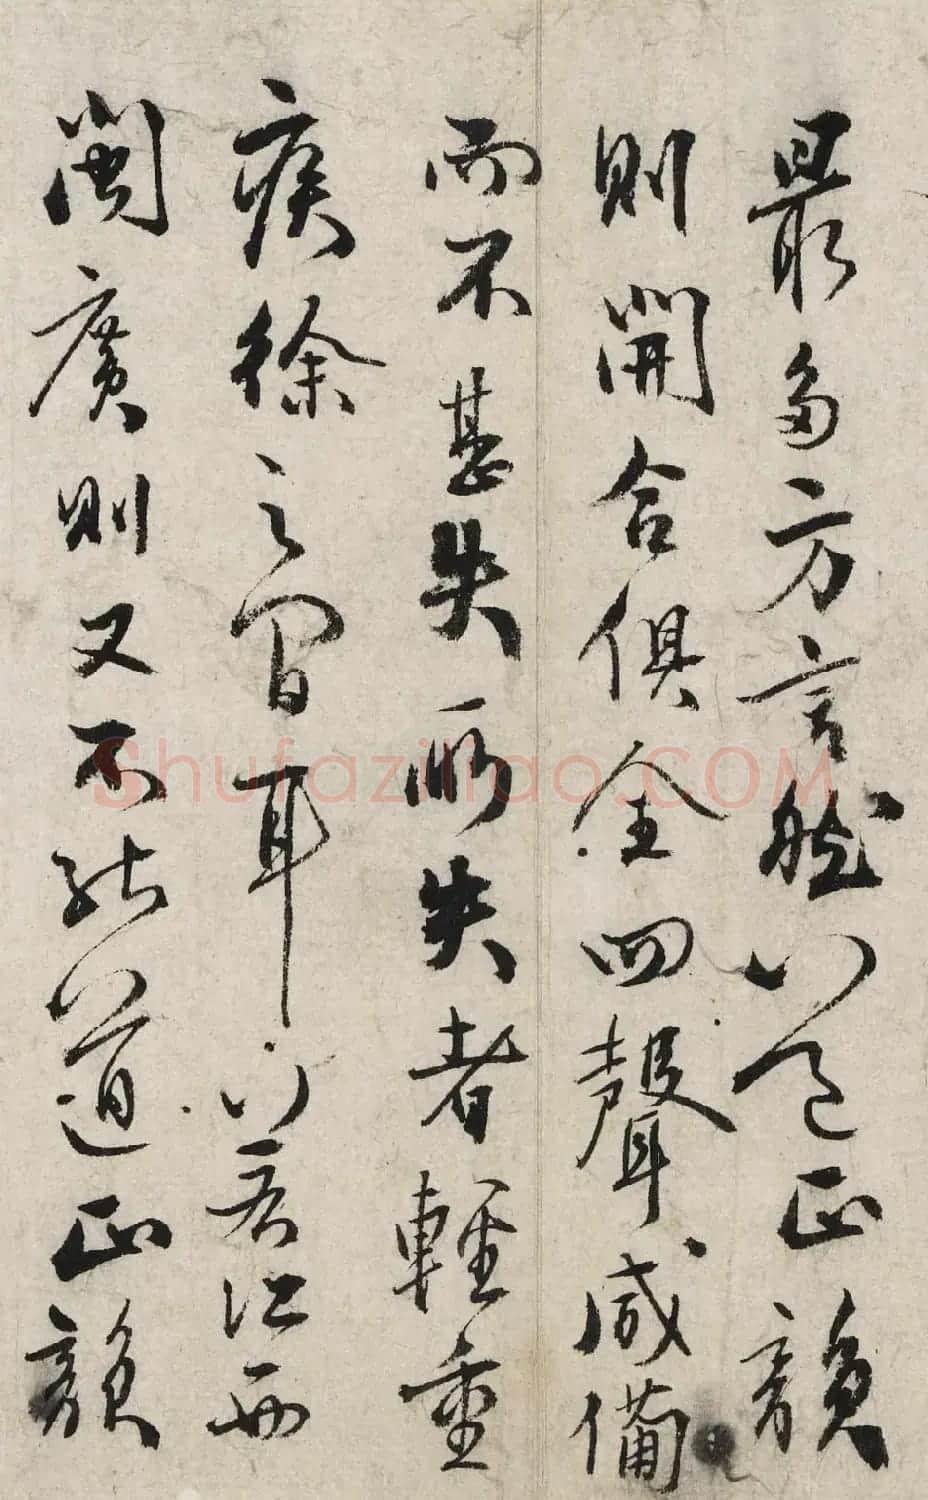 最多方言然以正韻
則開合俱全四聲咸備
而不甚失所失者輕重
疾徐之間耳以若江西
閩廣則又不能以道正韻
Shufaziliao.COM